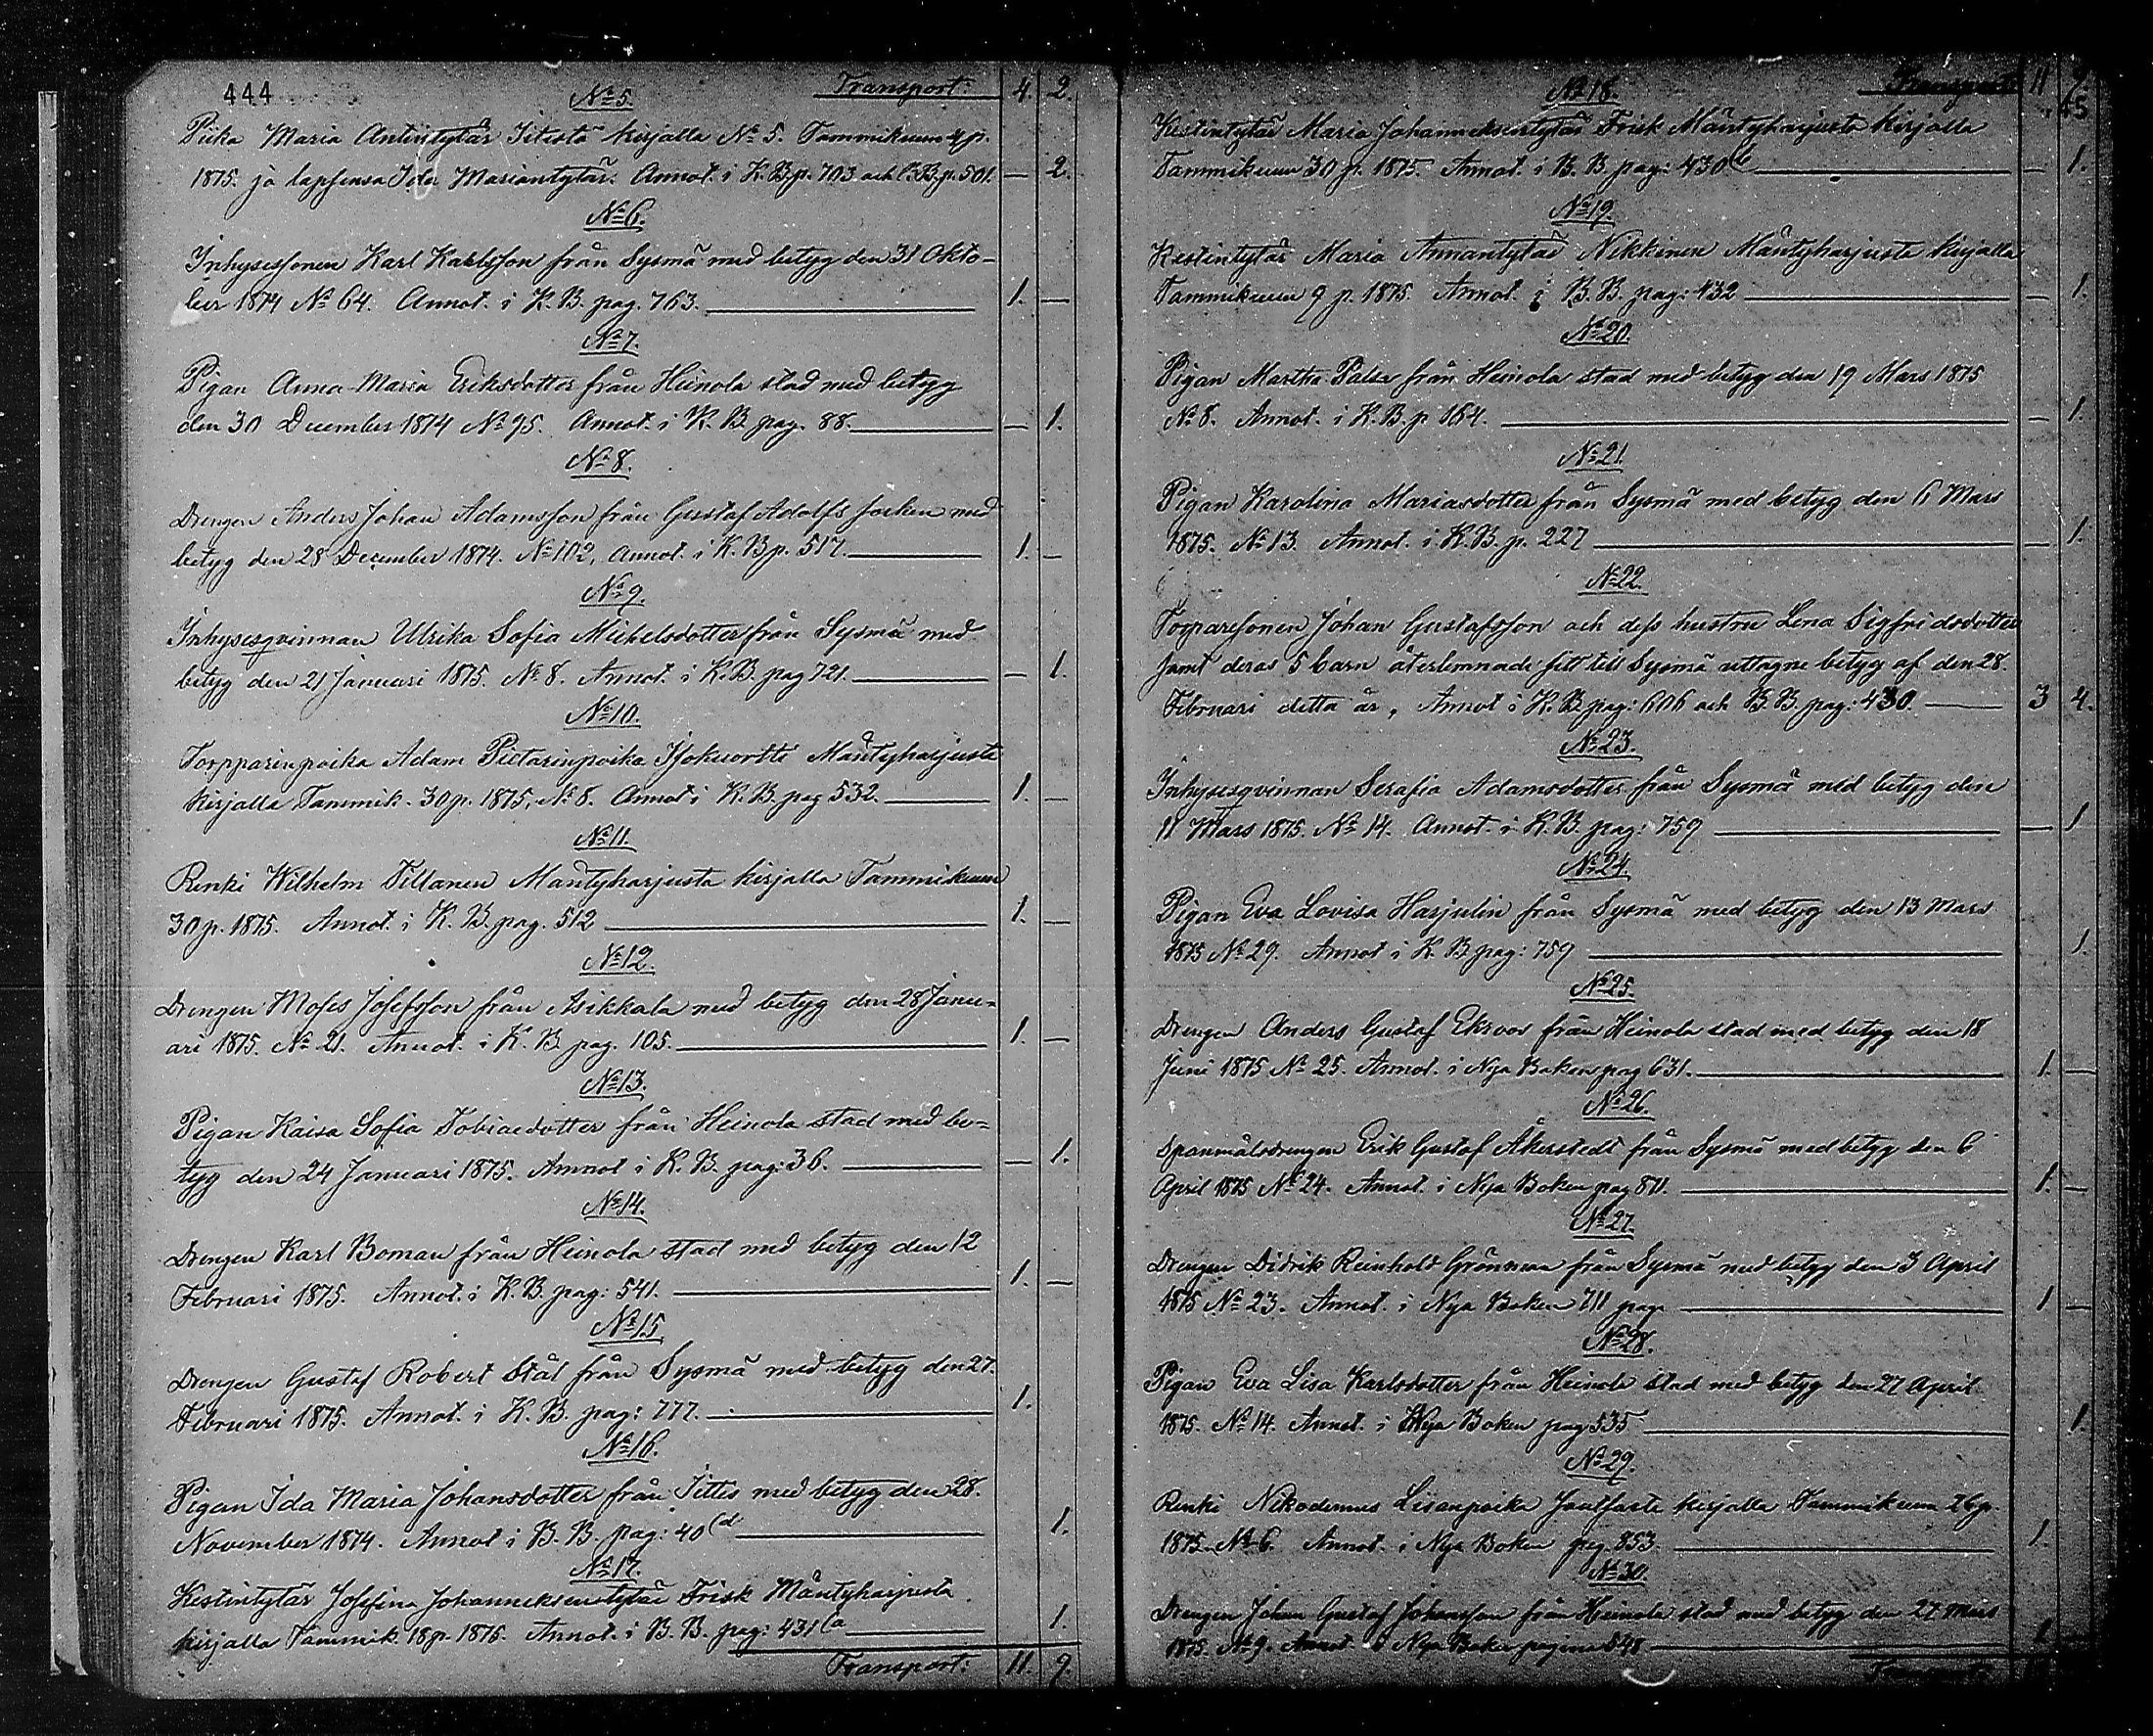 444
Transport: 4. 2.
No 5.
Piika Maria Antintytär Jitistä kirjalla No 5. Tammikuun 4 p.
1875. ja lapsensa Ida Mariantytär. Annot. i K. B. p. 703 och B. B. p. 501. — 2.
No 6.
Inhysessonen Karl Karlsson från Sysmä med betyg den 31 Okto-
ber 1874 No 64. Annot. i K. B. pag. 763. 1. —
No 7.
Pigan Anna Maria Eriksdotter från Heinola stad med betyg
den 30 December 1874 No 95. Annot. i K. B. pag. 88. — 1.
No 8.
Drengen Anders Johan Adamsson från Gustaf Adolfs socken med
betyg den 28 December 1874. No 102, Annot. i K. B p. 517. 1. —
No 9.
Inhysesqvinnan Ulrika Sofia Michelsdotter från Sysmä med
betyg den 21 Januari 1875. No 8. Annot. i K. B. pag 721. — 1.
No 10.
Torpparinpoika Adam Pietarinpoika Mäntyharjusta
kirjalla Tammik. 30 p. 1875, No 8. Annot i K. B. pag 532. 1. —
No 11.
Renki Wilhelm Tillanen Mäntyharjusta kirjalla Tammikuun
30 p. 1875. Annot. i K. B. pag. 512 1. —
No 12.
Drengen Moses Josefsson från Asikkala med betyg den 28 Janu-
ari 1875. No 21. Annot. i K. B. pag. 105. 1. —
No 13.
Pigan Kaisa Sofia Tobiaedotter från Heinola stad med be-
tyg den 24 Januari 1875. Annot i K. B. pag: 36. — 1.
No 14.
Drengen Karl Boman från Heinola stad med betyg den 12
Februari 1875. Annot. i K. B. pag: 541. 1. —
No 15.
Drengen Gustaf Robert Stål från Sysmä med betyg den 27.
Februari 1875. Annot. i K. B. pag: 777. 1.
No 16.
Pigan Ida Maria Johansdotter från Jittis med betyg den 28.
November 1874. Annot i B. B. pag: 40 (d 1.
No 17.
Kestintytär Josefina Johanneksentytär Frisk Mäntyharjusta
kirjalla Tammik. 18 p. 1875. Annot. i B. B. pag: 431 (a 1.
Transport: 11. 9.
Transport: 11 9.
No 18.
Kestintytär Maria Johanneksentytär Frisk Mäntyharjusta kirjalla
Tammikuun 30 p. 1875. Annot. i B. B. pag: 430 — 1.
No 19.
Kestintytär Maria Annantytär Nikkinen Mäntyharjusta kirjalla
Tammikuun 9 p. 1875. Annot. i B. B. pag: 432 — 1.
No 20.
Pigan Martha från Heinola stad med betyg den 19 Mars 1875
No 8. Annot. i K. B. p 164. — 1.
No 21.
Pigan Karolina Mariasdotter från Sysmä med betyg den 6 Mars
1875. No 13. Annot. i K. B. p. 227 — 1.
No 22.
Torparesonen Johan Gustafsson och dess hustru Lena Sigfridsdotter
samt deras 5 barn återlemnade sitt till Sysmä uttagne betyg af den 28.
Februari detta år, Annot i K. B. pag: 606 och B. B. pag: 430. 3 4.
No 23.
Inhysesqvinnan Serafia Adamsdotter från Sysmä med betyg den
11 Mars 1875. No 14. Annot. i K. B. pag: 759 — 1
No 24.
Pigan Eva Lovisa Harjulin från Sysmä med betyg den 13 Mars
1875 No 29. Annot i K. B pag: 759 1.
No 25.
Drengen Anders Gustaf Ekroos från Heinola stad med betyg den 18
Juni 1875 No 25. Annot. i Nya Boken pag 631. 1. —
No 26.
Spanmålsdrengen Erik Gustaf Åkerstedt från Sysmä med betyg den 6
April 1875 No 24. Annot. i Nya Boken pag 871. 1. —
No 27.
Drengen Didrik Reinhold Grönman från Sysmä med betyg den 3 April
1875 No 23. Annot. i Nya Boken 711 pag. 1 —
No 28.
Pigan Eva Lisa Karlsdotter från Heinola stad med betyg den 27 April
1875. No 14. Annot. i Nya Boken pag 535 1.
No 29.
Renki Nikodemus Lisanpoika kirjalla Tammikuun 26 p.
1875. No 6. Annot. i Nya Boken pag. 853. 1.
No 30.
Drengen Johan Gustaf Johansson från Heinola stad med betyg den 27 Mars
1875. No 9. Annot. i Nya Boken pagina 548 1
Transport: